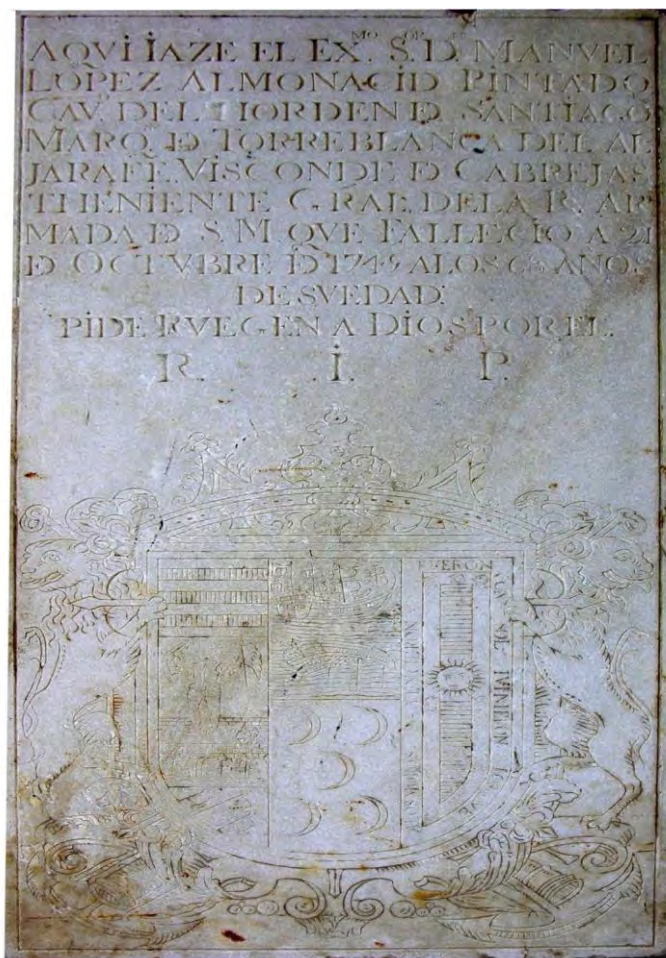 AQVİ İAZE EL EX.MO S.OR D. MANVEL
LOPEZ ALMONACİD PİNTADO
CAV. DEL HORDEN D SANTİAGO
MARQ. D TORREBLANCA DEL AL
JARAFE. VİSCONDE D CABREJAS
THENİENTE GRAL. DE LA R. AR
MADA D S. M. QVE FALLECİO A 21
D OCTVBRE D 1745 A LOS 68 AÑOS
DE SV EDAD.
PİDE RVEGEN A DİOS POR EL.
R. İ. P.
FVERON